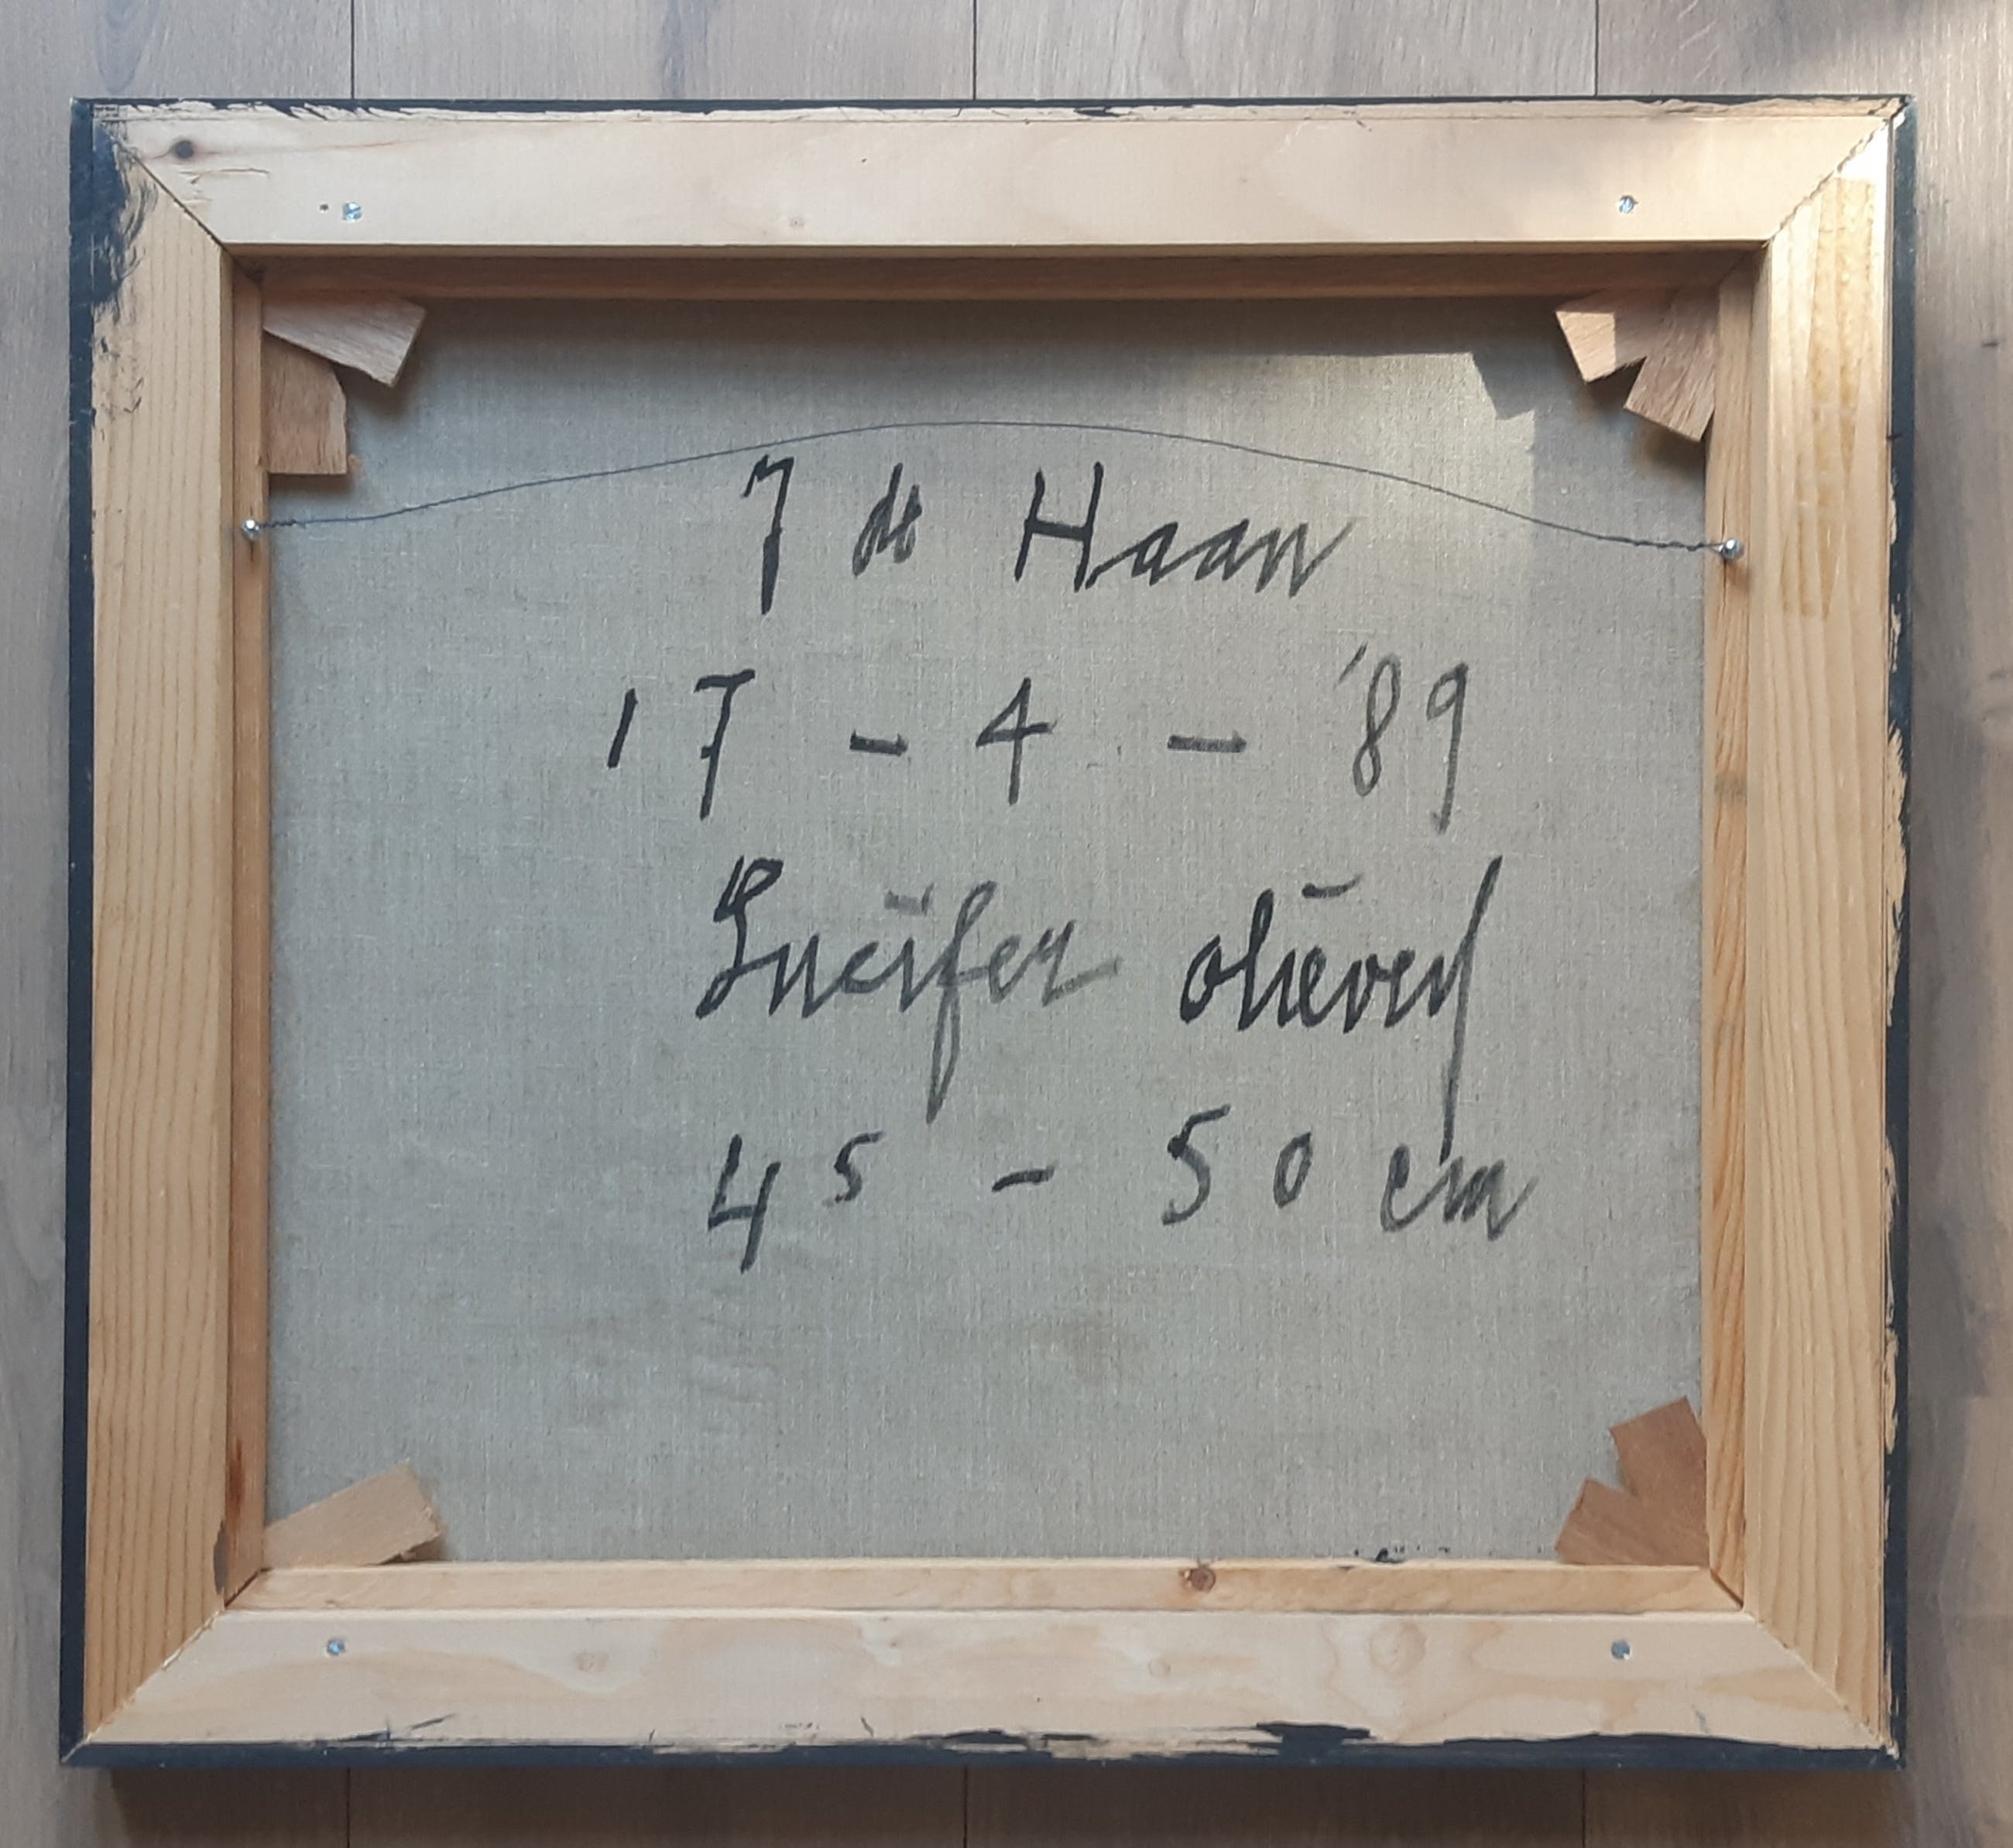 J de Haan
17 - 4 - '89
Lucifer olieverf
45 - 50 cm